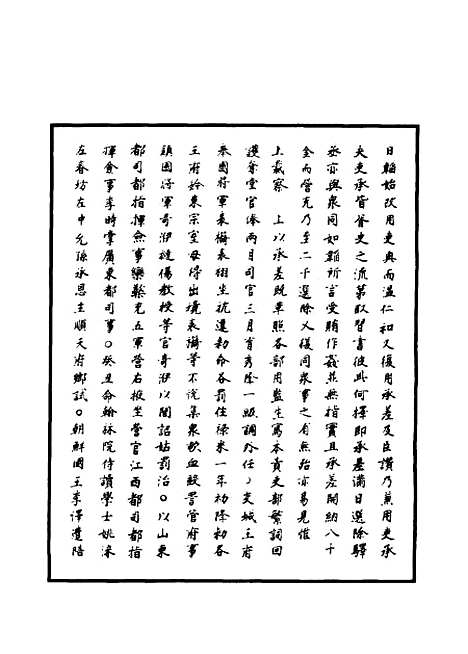 日韜始改用吏典而温仁和又復用承差及臣讚乃兼用吏承
夫吏承皆胥史之流第取習書彼此何擇即承差滿日選除驛
丞亦與衆同如韜所言受賄作姦並無指實且承差開納八十
金而營充乃至二千選除又後同衆事之有無殆亦易見惟
上裁察 上以承差既革照各部用監生寫本責吏部繁詞回
護奪堂官俸兩月司官三月育秀降一級調外任○交城王府
奉國將軍表橫表栩坐抗違勅命各罰住祿米一年初降勅各
王府約束宗室毋得出境表橫等不從集衆歃血毆詈管府事
鎮國將軍奇洢縫傷教授等官奇洢以聞詔姑罰治○以山東
都司都指揮僉事欒鑿充五軍營右掖坐營官江西都司都指
揮僉事李時掌廣東都司事○癸丑命翰林院侍讀學士姚淶
左春坊左中允孫承恩主順天府鄉試○朝鮮國王李懌遣陪